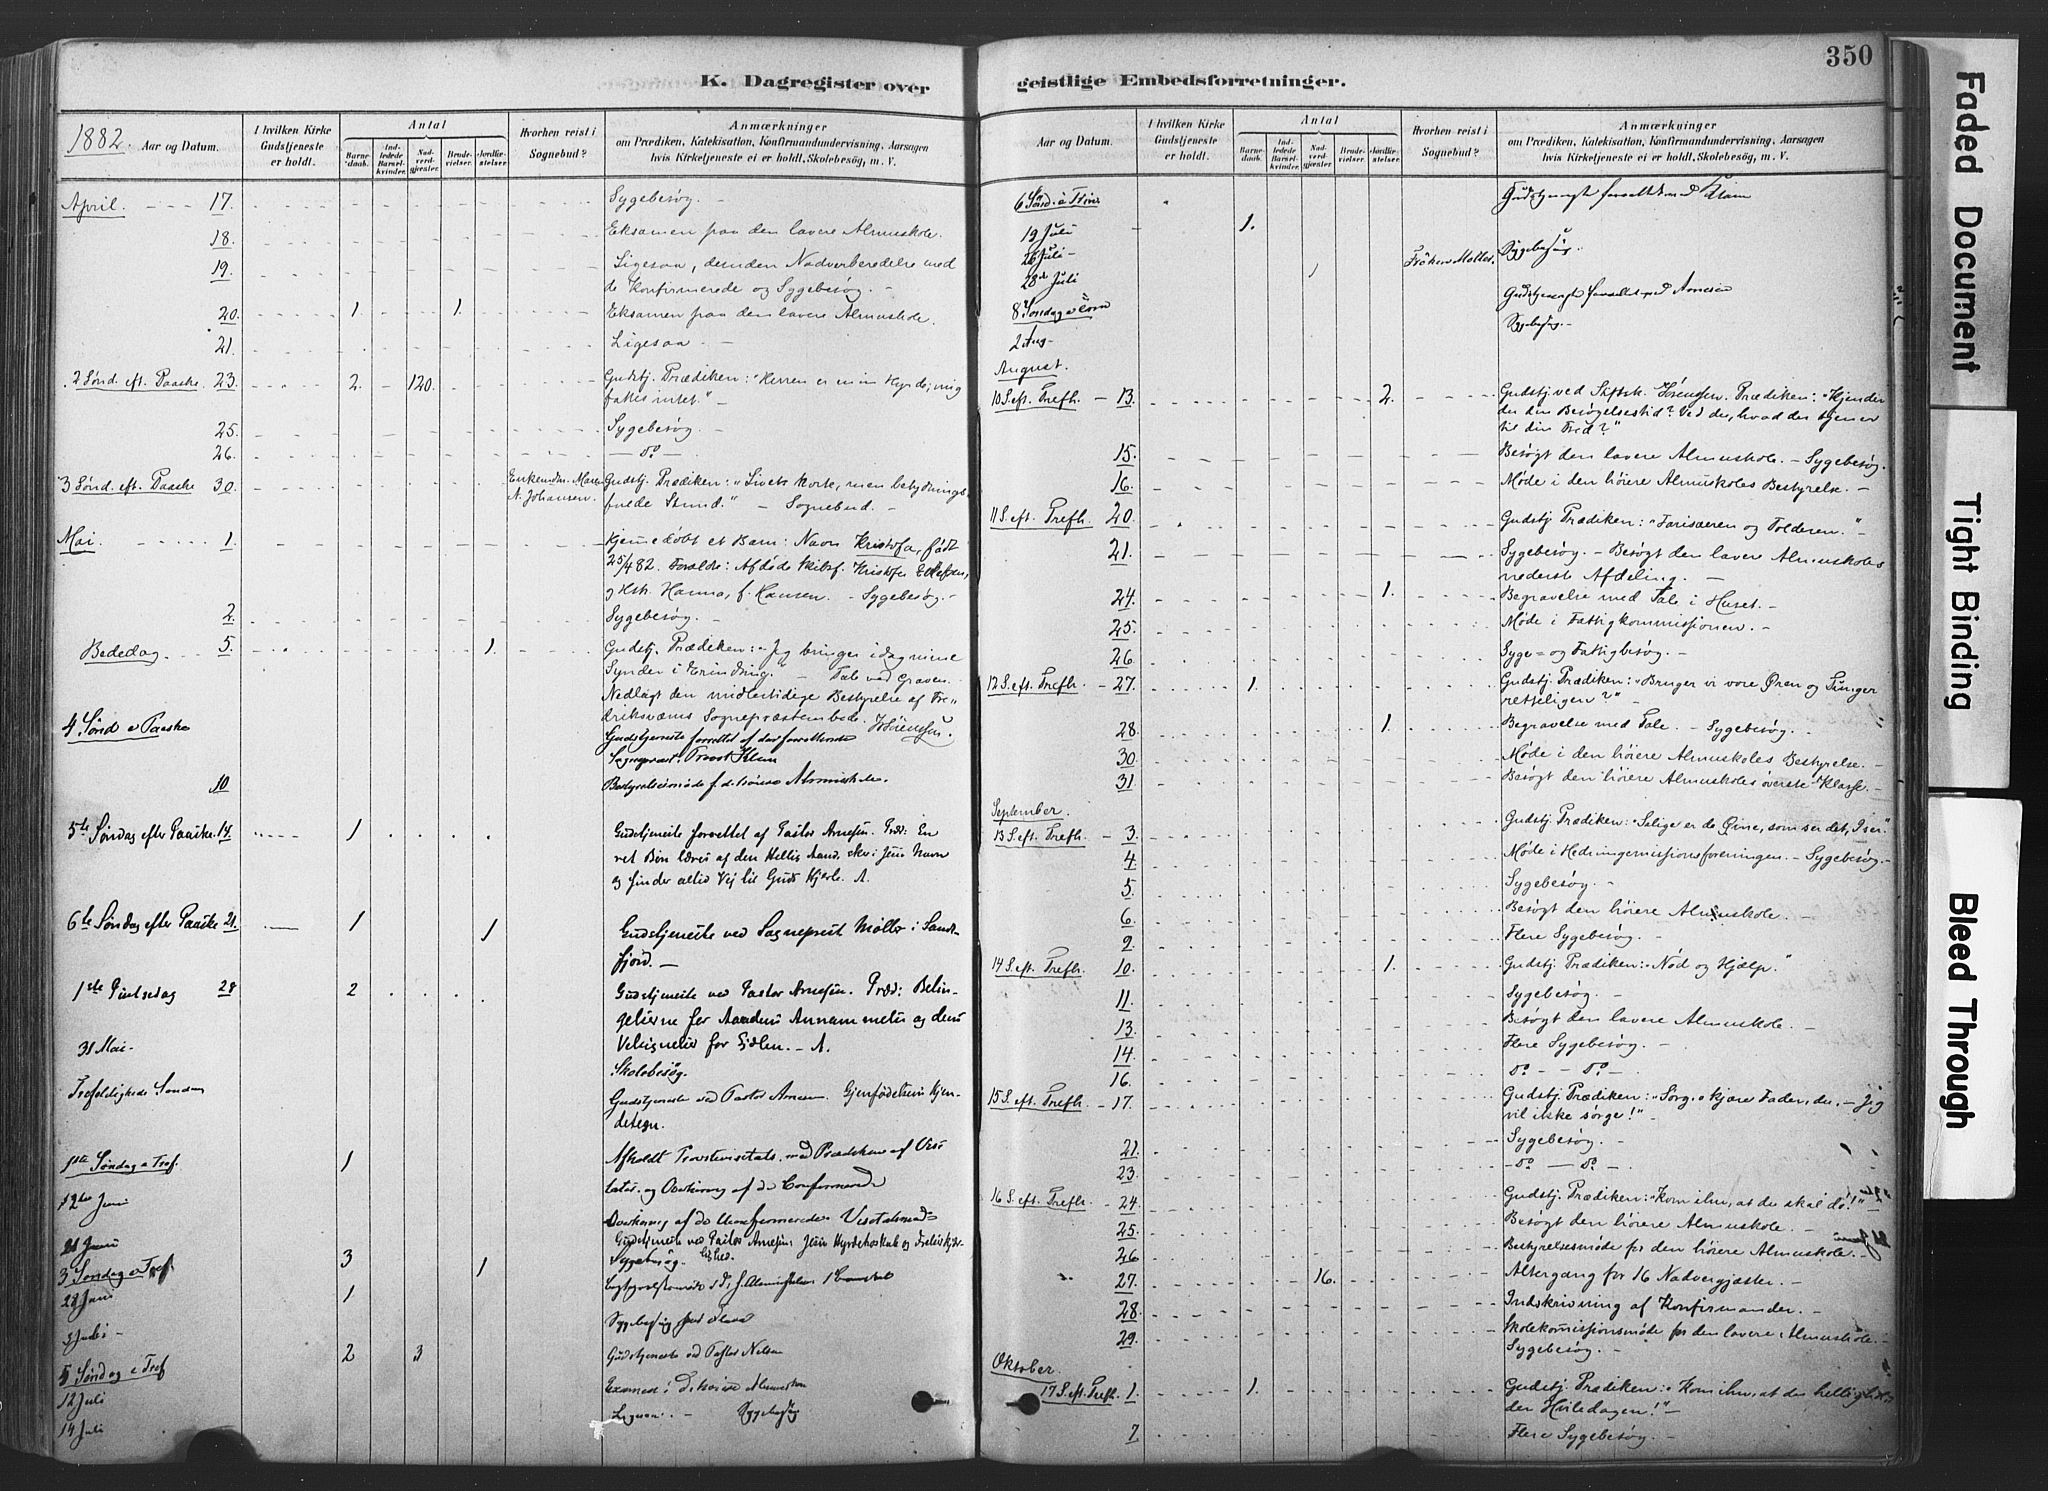 K. Dagregister over
1882. Aar og Datum.
I hvilken Kirke Gudstjeneste er holdt.
Antal
Barnedaab.
Indledede Barselkvinder.
Nadverdgjester.
Brudevielser.
Jordfæstelser.
Hvorhen reist i Sognebud?
Anmærkninger
om Prædiken, Katekisation, Konfirmandundervisning, Aarsagen
hvis Kirketjeneste ei er holdt, Skolebesøg, m. V.
April. 17. Sygebesøg. -
18. Eksamen paa den lavere Almuskole.
19. Ligesaa, desuden Nadverberedelse med
de Konfirmerede og Sygebesøg. -
20. 1 1. Eksamen paa den lavere Almuskole.
21. Ligesaa -
2 Sønd. eft. Paaske. 23. 2. 120. Gudstj. Prædiken: "Herren er min Hyrde; mig
fattes intet." -
25. Sygebesøg.
26. - do -
3 Sønd. eft. Paaske 30. Enkemdm. Maren Gudstj. Prædiken: "Livets korte, men betydnings-
A. Johansen. fulde Stund." - Sognebud. -
Mai. 1. Hjemmedøbt et Barn: Navn Kristofa, født
25/4 82. Foreldre: Afdøde skibsf. Kristofer Ellefsen,
og Hstr. Hanna, f. Hansen. - Sygebesøg. -
2. Sygebesøg. -
Bededag. 5. 1. Gudstj. Prædiken: "Jeg bringer idag mine
Synder i Erindring." - Tale ved Graven.
Nedlagt den midlertidige Bestyrelse af Fre-
driksværns Sognepræstembede. H. Sörensen.
4 Sønd e Paaske Gudstjeneste forrettet af
Sognepræst, Provst Klem
10 Bestyrelsesmøde f. d. høiere Almueskole.
5te Søndag efter Paaske. 14. 1 Gudstjeneste forrettet af Pastor Arnesen. Præd: En
ret Bøn læres af den Hellig Aand, sker i Jesu Navn
og finder altid Vej til Guds Hjerte. A.
6te Søndag efter Paaske 21. 1 1 Gudstjeneste ved Sogneprest Møller i Sande-
fjord. -
1ste Pintsedag 28 2 Gudstjeneste ved Pastor Arnesen. Præd: Betin-
gelserne for Aandens Annammelse og dens
Velsignelse for Sjelen. - A.
31 Mai - Skolebesøg.
Trefoldigheds Søndag Gudstjeneste ved Pastor Arnesen. Gjenfødelsens Kjen-
detegn.
1ste Søndag e Tref. 1 Afholdt Provstevisitats med Prædiken af Visi
tator og Overhøring af de Confirmerede
12te Juni
21 Juni Gudstjeneste ved Pastor Arnesen
3 Søndag e Tref 3 1 Sygebesøg.
28 Juni 1
Juli - Sygebesøg
5 Søndag e Tref 2 3 Gudstjeneste ved Pastor Nelsen
12 Juli Examen i d. høiere Almueskole
14 Juli Ligesaa. - Sygebesøg
geistlige Embedsforretninger.
350
Aar og Datum.
I hvilken Kirke Gudstjeneste er holdt.
Antal
Barnedaab.
Indledede Barselkvinder.
Nadverdgjester.
Brudevielser.
Jordfæstelser.
Hvorhen reist i Sognebud?
Anmærkninger
om Prædiken, Katekisation, Konfirmandundervisning, Aarsagen
hvis Kirketjeneste ei er holdt, Skolebesøg, m. V.
6 Sønd. e Trin Gudstjeneste forrettet ved Klem
19 Juli 1.
26 Juli - Sygebesøg.
28de Juli 1 Frøken Møller.
8 Søndag e Gudstjeneste forrettet ved Arnesen
2 Aug - Sygebesøg. -
August.
10 S. eft. Trefh. - 13. 2. Gudstj. ved Stiftsk. Sörensen. Prædiken: "Kjender
du din Besøgelsestid? Ved du, hvad der tjener
til din Fred?"
15. Besøgt den lavere Almuskole. - Sygebesøg.
16. Møde i den høiere Almuskoles Bestyrelse. -
11 S. eft. Trefh. 20. Gudstj. Prædiken: "Farisæeren og Tolderen."
21. Sygebesøg. - Besøgt den lavere Almuskoles
nederste Afdeling. -
24. 1. Begravelse med Tale i Huset. -
25. Møde i Fattigkommissionen. -
26. Syge= og Fattigbesøg. -
12 S. eft. Trefh. - 27. 1. Gudstj. Prædiken: "Bruger vi vore Øren og Tunger
retteligen?" -
28. 1. Begravelse med Tale. - Sygebesøg. -
30. Møde i den høiere Almuskoles Bestyrelse. -
31. Besøgt den høiere Almuskoles øverste Klasse. -
September.
13 S. eft. Trefh. - 3. Gudstj. Prædiken: "Salige er de Øine, som ser det, I ser."
4. Møde i Hedningemissionsforeningen. - Sygebesøg. -
5. Sygebesøg. -
6. Besøgt den høiere Almuskole. -
9. Flere Sygebesøg. -
14 S. eft. Trefh. - 10. 1. Gudstj. Prædiken: "Nød og Hjælp."
11. Sygebesøg. -
13. Besøgt den lavere Almuskole. -
14. Flere Sygebesøg. -
16. do - - do -
15 S. eft. Trefh. - 17. Gudstj. Prædiken: "Sørg, o kjære Fader, du, - Jeg
vil ikke sørge!" -
21. Sygebesøg. -
23. - do - do -
16 S. eft. Trefh. - 24. Gudstj. Prædiken: "Kom ihu, at du skal dø!" -
25. Besøgt den høiere Almuskole. -
26. Bestyrelsesmøde for den høiere Almuskole. -
27. 16. Altergang for 16 Nadvergjæster. -
28. Indskrivning af Konfirmander. -
29. Skolekommissionsmøde for den lavere Almuskole. -
Sygebesøg. -
Oktober.
17 S. eft. Trefh. 1. 1. Gudstj. Prædiken: "Kom ihu, at du helligholder
den Hviledagen!" -
7 Flere Sygebesøg. -
Faded Document
Tight Binding
Bleed Through